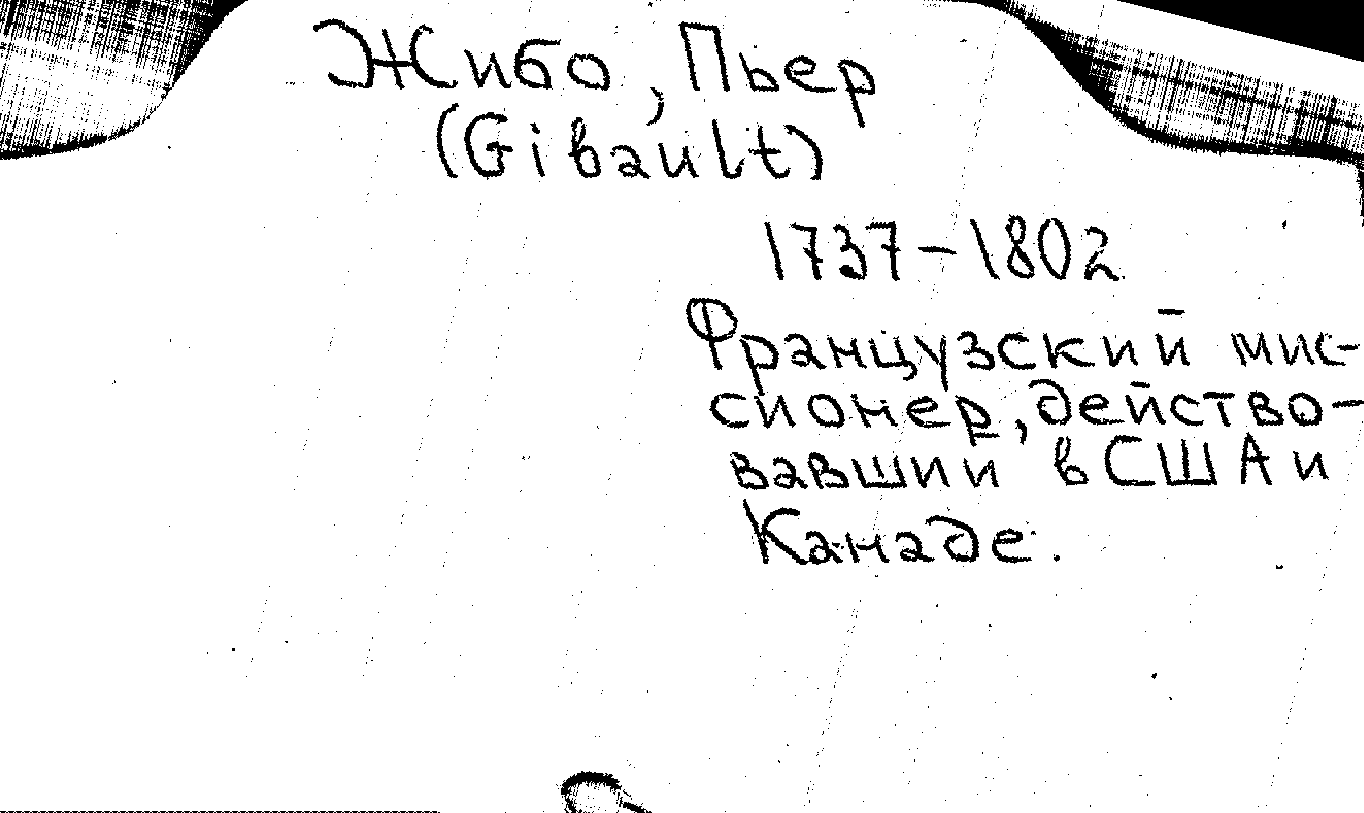 Жибо, Пьер
(Gibault)
1737-1802
Французский мис-
сионер, действо-
вавший в США и
Канаде.